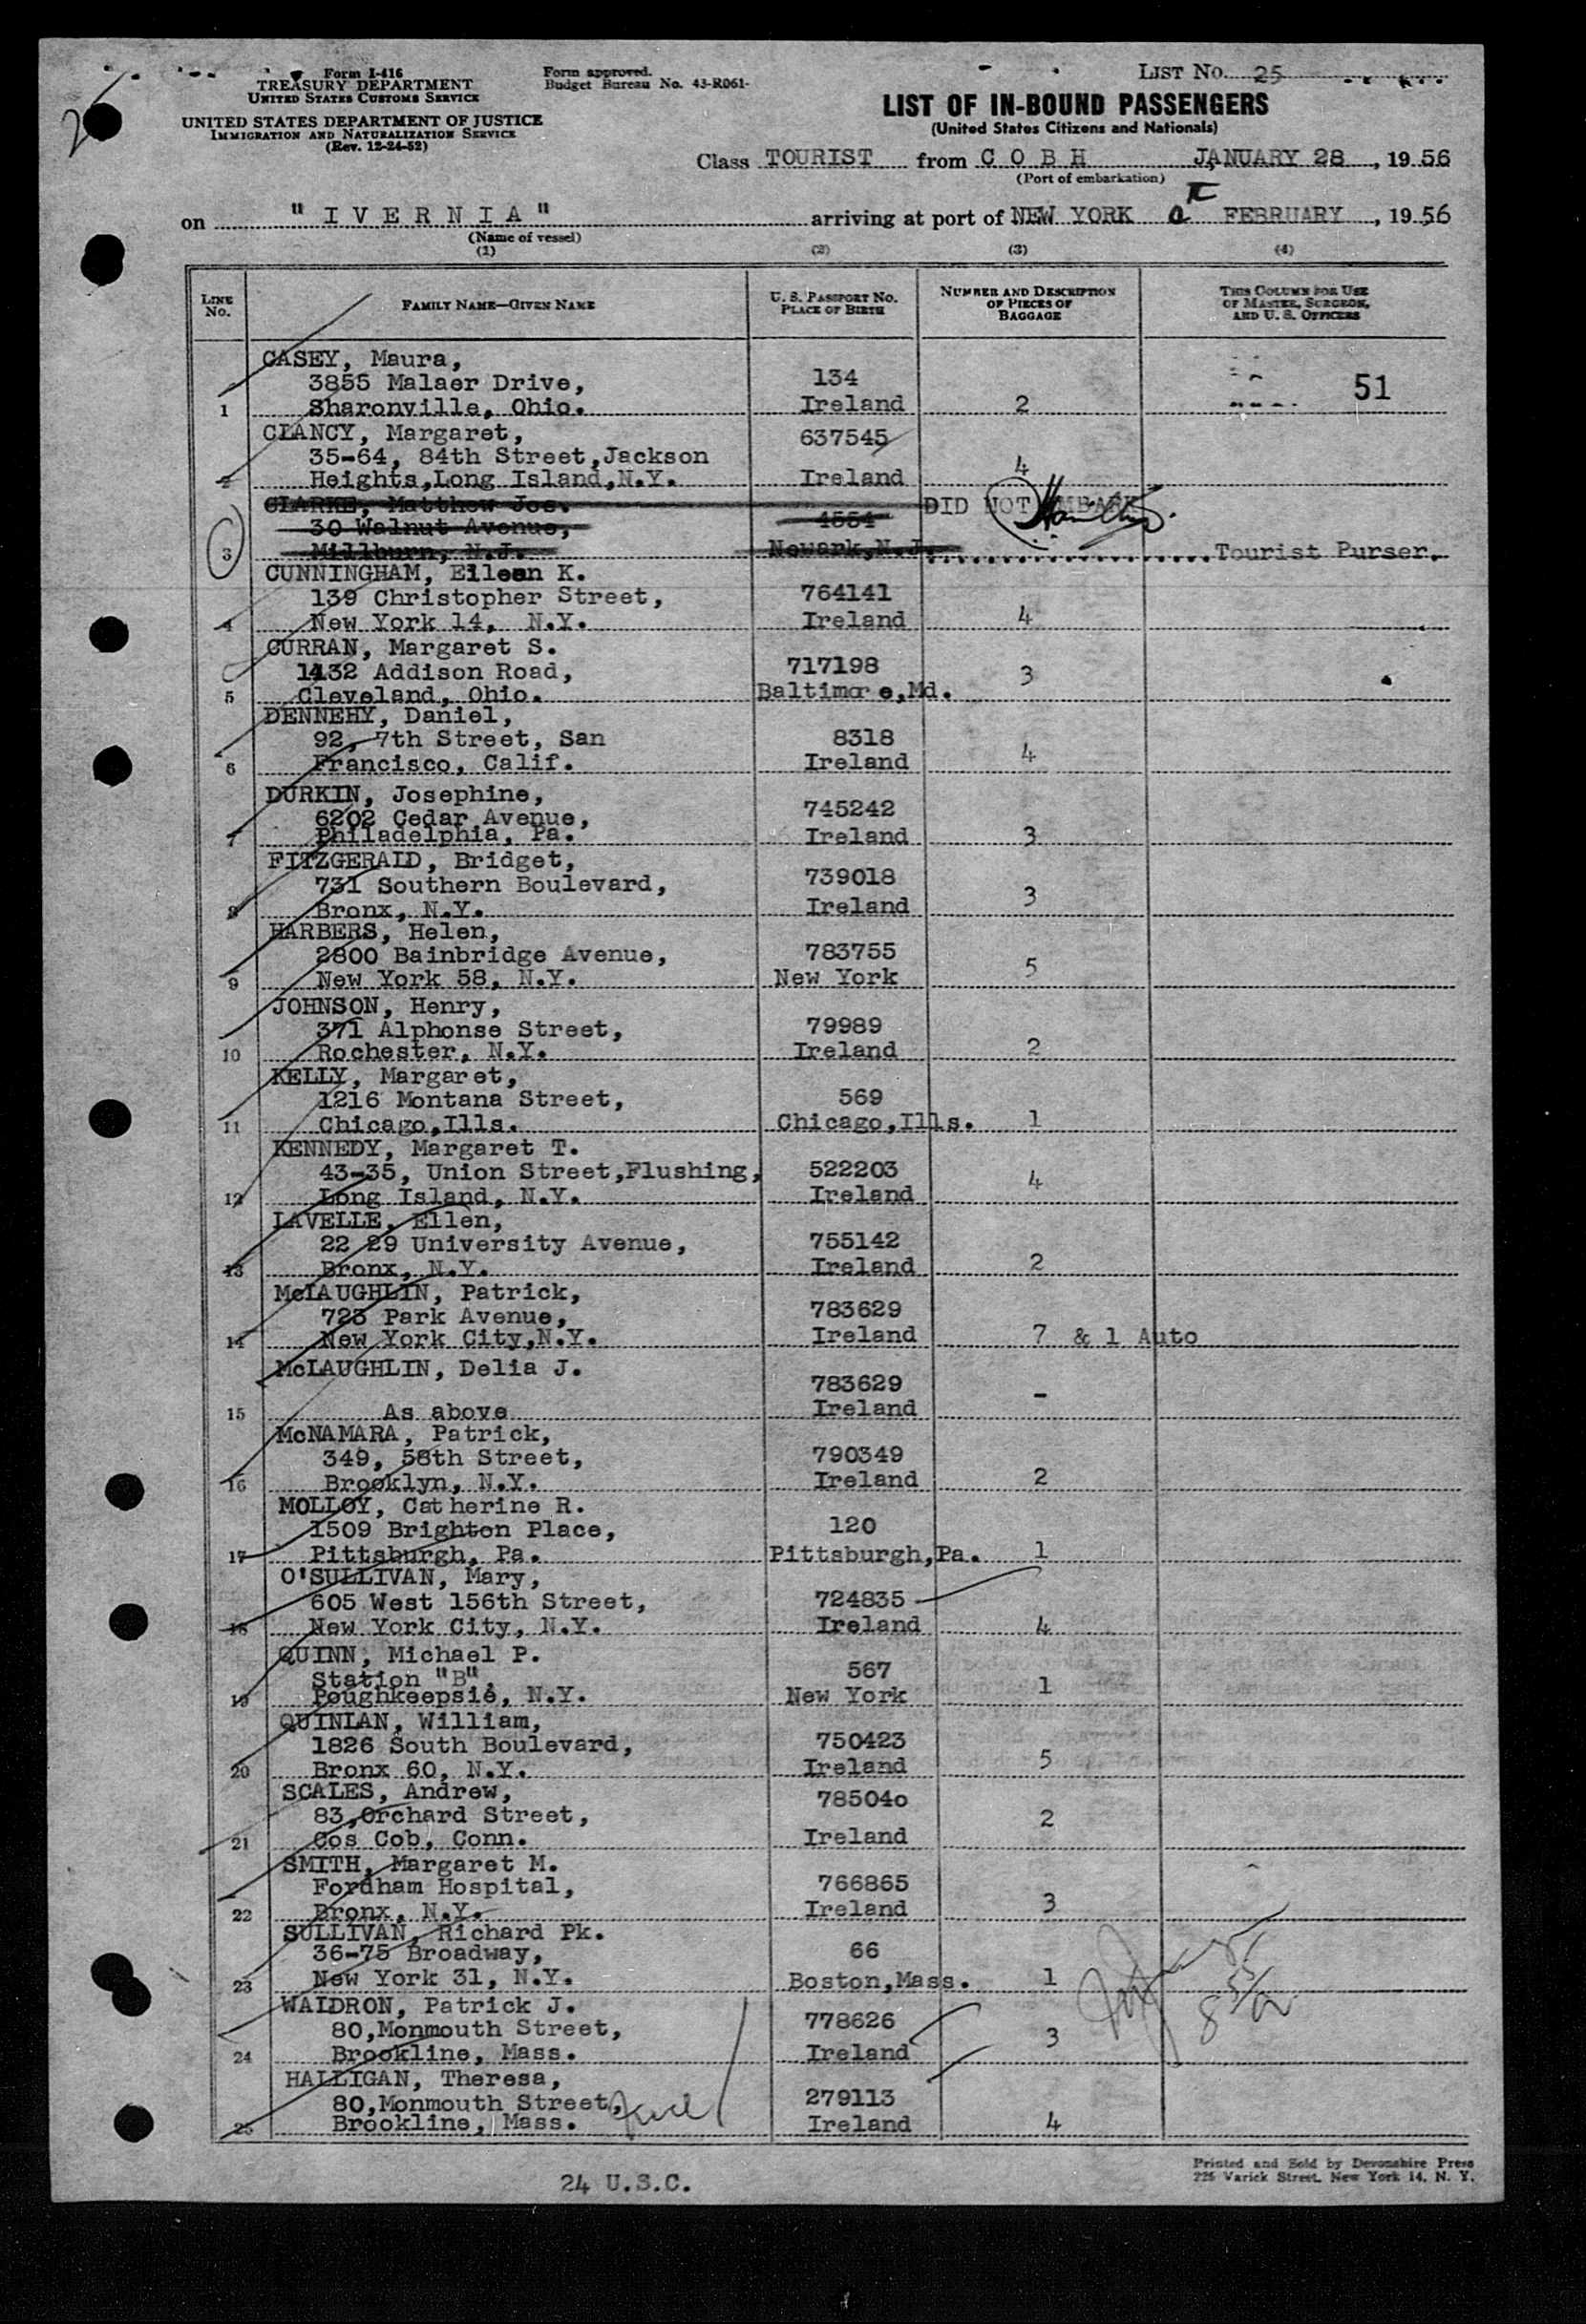 Form I-416
TREASURY DEPARTMENT
UNITED STATES CUSTOMS SERVICE
UNITED STATES DEPARTMENT OF JUSTICE
IMMIGRATION AND NATURALIZATION SERVICE
(Rev. 12-24-52)
Form approved.
Budget Bureau No. 43-R061-
LIST NO. 25
LIST OF IN-BOUND PASSENGERS
(United States Citizens and Nationals)
Class TOURIST from C O B H JANUARY 28, 1956
(Port of embarkation)
on "I V E R N I A" arriving at port of NEW YORK FEBRUARY, 1956
(Name of vessel)
(1) (2) (3) (4)
LINE NO.
FAMILY NAME—GIVEN NAME
U. S. PASSPORT NO.
PLACE OF BIRTH
NUMBER AND DESCRIPTION
OF PIECES OF
BAGGAGE
THIS COLUMN FOR USE
OF MASTER, SURGEON,
AND U. S. OFFICERS
CASEY, Maura,
3855 Malaer Drive, 134 51
1 Sharonville, Ohio. Ireland 2
CLANCY, Margaret, 637545
35-64, 84th Street,Jackson
2 Heights,Long Island,N.Y. Ireland 4
CLARKE, Matthew Jos. DID NOT EMBARK
30 Walnut Avenue, 4554
3 Millburn, N.J. Newark,N.J. Tourist Purser.
CUNNINGHAM, Eileen K.
139 Christopher Street, 764141
4 New York 14, N.Y. Ireland 4
CURRAN, Margaret S.
1432 Addison Road, 717198 3
5 Cleveland, Ohio. Baltimore,Md.
DENNEHY, Daniel,
92, 7th Street, San 8318
6 Francisco, Calif. Ireland 4
DURKIN, Josephine,
6202 Cedar Avenue, 745242
7 Philadelphia, Pa. Ireland 3
FITZGERALD, Bridget,
731 Southern Boulevard, 739018
8 Bronx, N.Y. Ireland 3
HARBERS, Helen,
2800 Bainbridge Avenue, 783755
9 New York 58, N.Y. New York 5
JOHNSON, Henry,
371 Alphonse Street, 79989
10 Rochester, N.Y. Ireland 2
KELLY, Margaret,
1216 Montana Street, 569
11 Chicago,Ills. Chicago,Ills. 1
KENNEDY, Margaret T.
43-35, Union Street,Flushing, 522203
12 Long Island, N.Y. Ireland 4
LAVELLE, Ellen,
22 29 University Avenue, 755142
13 Bronx, N.Y. Ireland 2
McLAUGHLIN, Patrick,
723 Park Avenue, 783629
14 New York City,N.Y. Ireland 7 & 1 Auto
McLAUGHLIN, Delia J.
783629 -
15 As above Ireland
McNAMARA, Patrick,
349, 58th Street, 790349
16 Brooklyn, N.Y. Ireland 2
MOLLOY, Catherine R.
1509 Brighton Place, 120
17 Pittsburgh, Pa. Pittsburgh,Pa. 1
O'SULLIVAN, Mary,
605 West 156th Street, 724835
18 New York City, N.Y. Ireland 4
QUINN, Michael P.
Station "B", 567
19 Poughkeepsie, N.Y. New York 1
QUINLAN, William,
1826 South Boulevard, 750423
20 Bronx 60, N.Y. Ireland 5
SCALES, Andrew, 785040
83,Orchard Street, 2
21 Cos Cob, Conn. Ireland
SMITH, Margaret M.
Fordham Hospital, 766865
22 Bronx, N.Y. Ireland 3
SULLIVAN, Richard Pk.
36-75 Broadway, 66
23 New York 31, N.Y. Boston,Mass. 1
WALDRON, Patrick J.
80,Monmouth Street, 778626
24 Brookline, Mass. Ireland 3
HALLIGAN, Theresa,
80,Monmouth Street, 279113
25 Brookline, Mass. Ireland 4
24 U.S.C.
Printed and Sold by Devonshire Press
225 Varick Street, New York 14, N. Y.